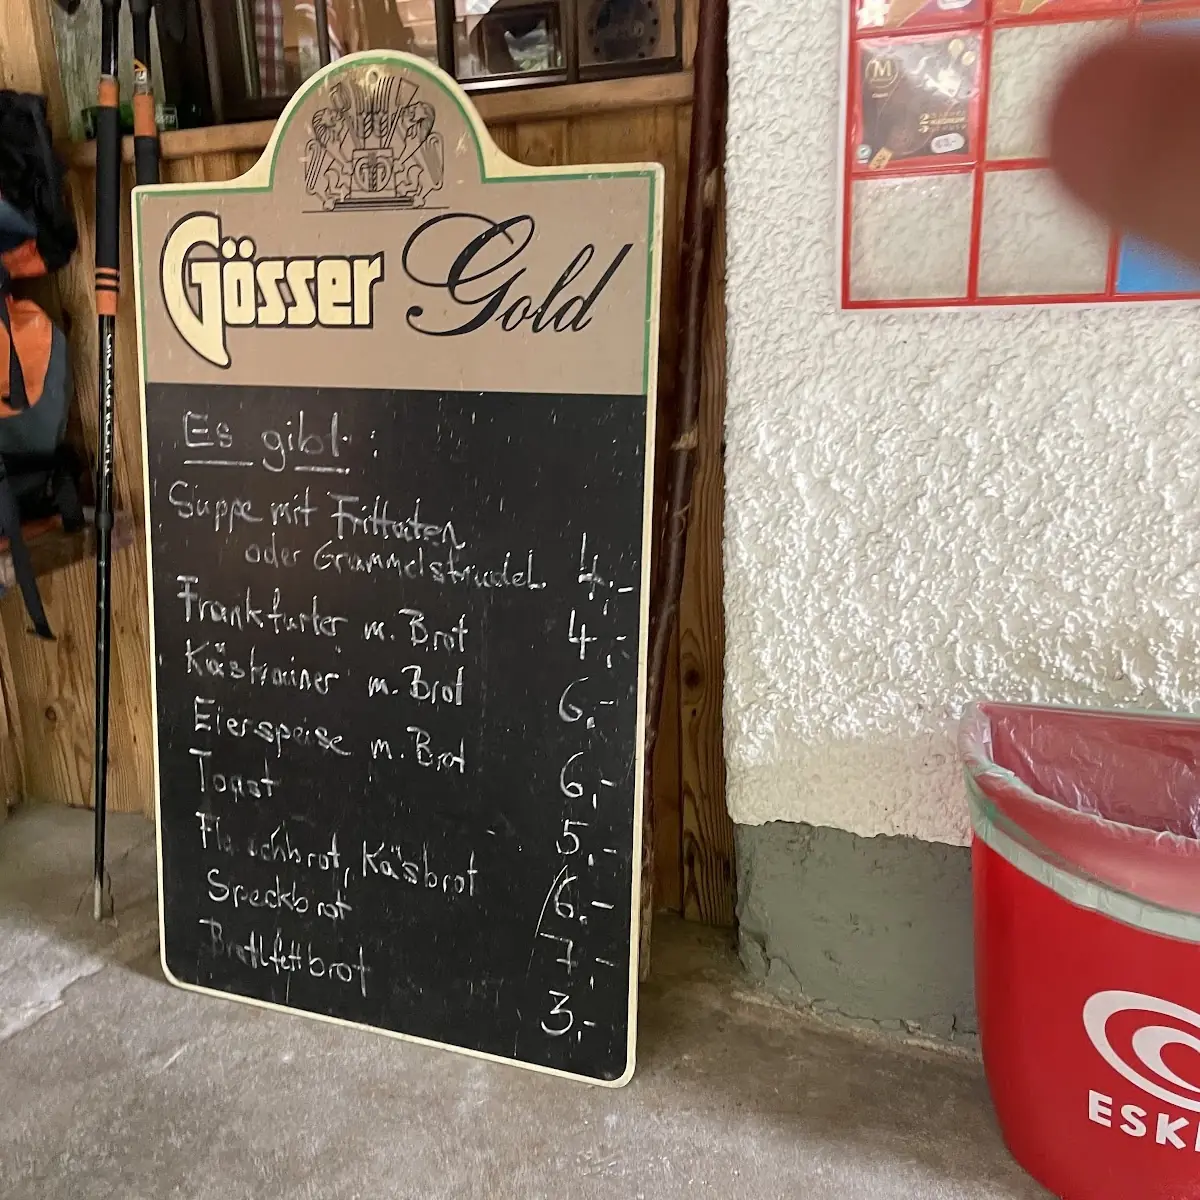 Gösser Gold
Es gibt:
Suppe mit Frittaten
oder Grammelstrudel 4,-
Frankfurter m. Brot 4,-
Käskrainer m. Brot 6,-
Eierspeise m. Brot 6,-
Toast 5,-
Käsbrot 6,-
Speckbrot 7,-
Bratlfettbrot 3,-
M